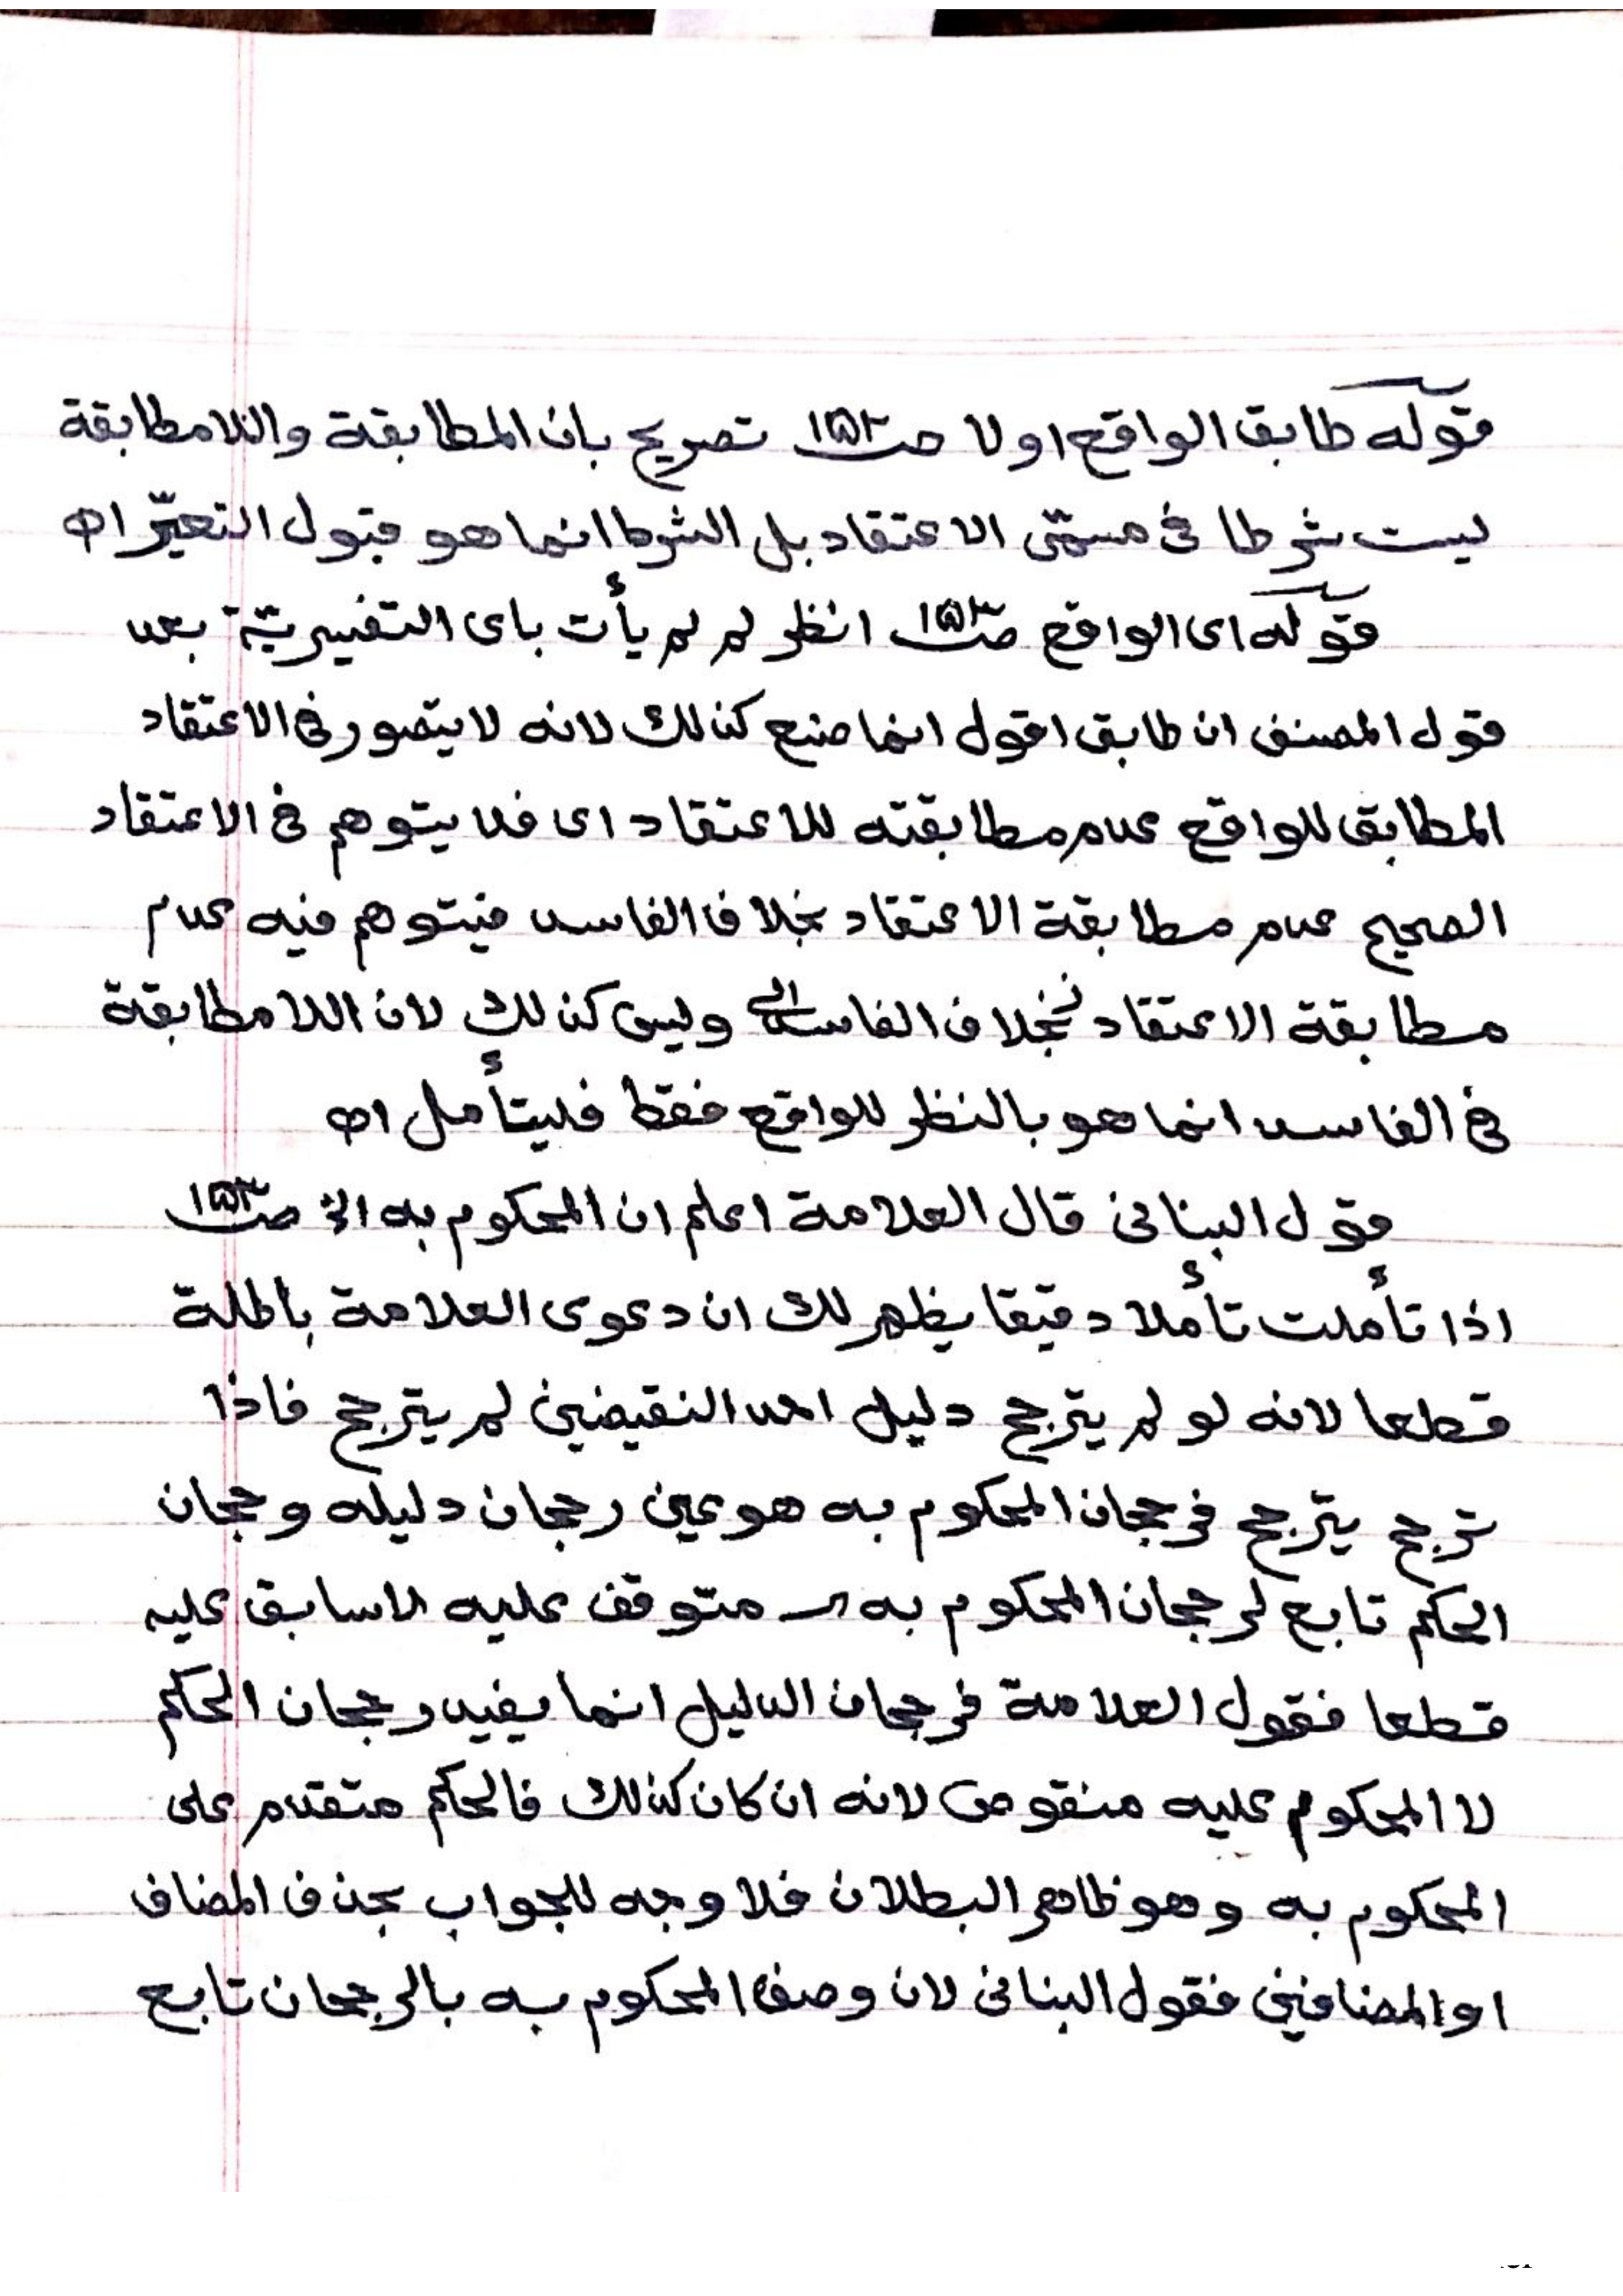 قوله طابق الواقع اولا صـ١٥٣ـ تصريح بان المطابقة واللامطابقة
ليست شرطا فى مسمّى الاعتقاد بل الشرط انما هو قبول التغيّر اھ
قوله اى الواقع صـ١٥٣ـ انظر لم لم يأت باى التفسيريّة بعد
قول المصنف ان طابق اقول انما صنع كذالك لانه لا يتصور فى الاعتقاد
المطابق للواقع عدم مطابقته للاعتقاد اى فلا يتوهم فى الاعتقاد
الصحيح عدم مطابقة الاعتقاد بخلاف الفاسد فيتوهم فيه عدم
مطابقة الاعتقاد بخلاف الفاسد وليس كذلك لان اللامطابقة
فى الفاسد انما هو بالنظر للواقع فقط فليتأمل اھ
قول البنانى قال العلامة اعلم ان المحكوم به الخ صـ١٥٣ـ
اذا تأملت تأملا دقيقا يظهر لك ان دعوى العلامة باطلة
قطعا لانه لو لم يترجح دليل احد النقيضين لم يترجح فاذا
ترجح يترجح فرجحان المحكوم به هو عين رجحان دليله وجحان
الحكم تابع لرجحان المحكوم به متوقف عليه لاسابق عليه
قطعا فقول العلامة فرجحان الدليل انما يفيد رجحان الحكم
لا المحكوم عليه منقوض لانه ان كان كذالك فالحكم متقدم على
المحكوم به وهو ظاهر البطلان فلا وجه للجواب بحذف المضاف
او المضافين فقول البنانى لان وصف المحكوم به بالرجحان تابع